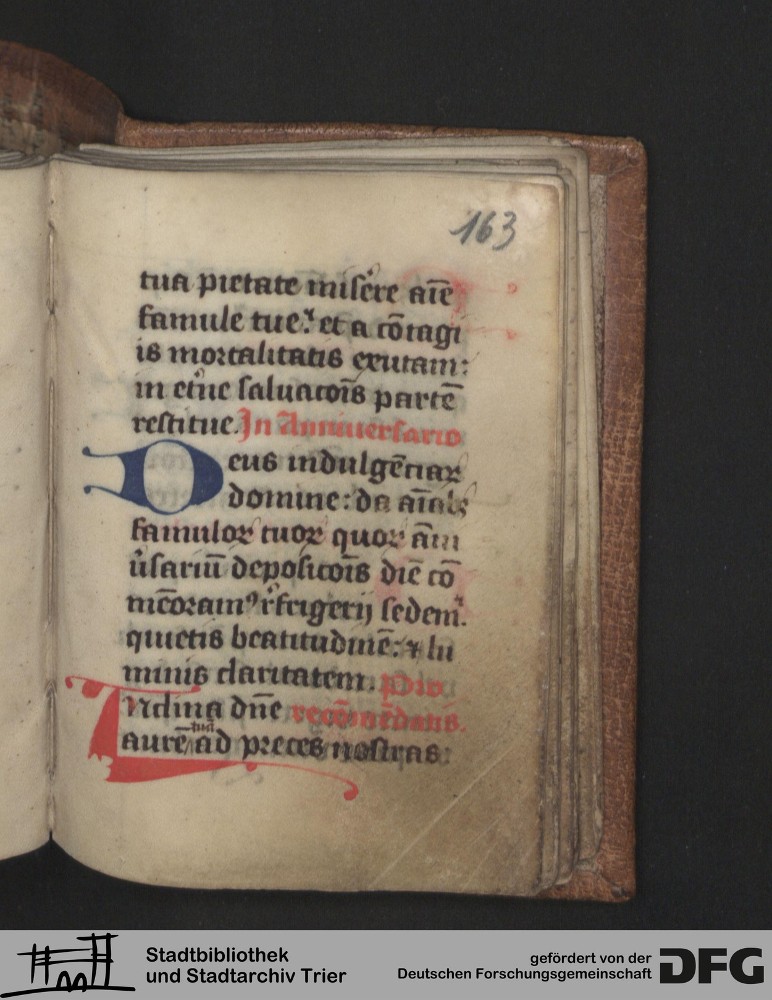 163
tua pietate miſe̾re aīe
famule tue: et a cōtagi
is mortalitatis exutam:
in etn̄e ſaluatoīs partē
reſtitue. In Anniuerſario
Deus indulgētiaꝝ
domine: da aīabꝫ
famuloꝝ tuoꝝ quoꝝ ān
iu̾ſariū depoſitoīs diē cō
mēoramꝰ re̾frigerij ſedem:
quietis beatitudinē: ⁊ lu
minis claritatem. Pro
Inclina dn̄e recōmēdatis.
aurē tuā ad preces noſtras:
Stadtbibliothek
und Stadtarchiv Trier
gefördert von der
Deutschen Forschungsgemeinschaft
DFG